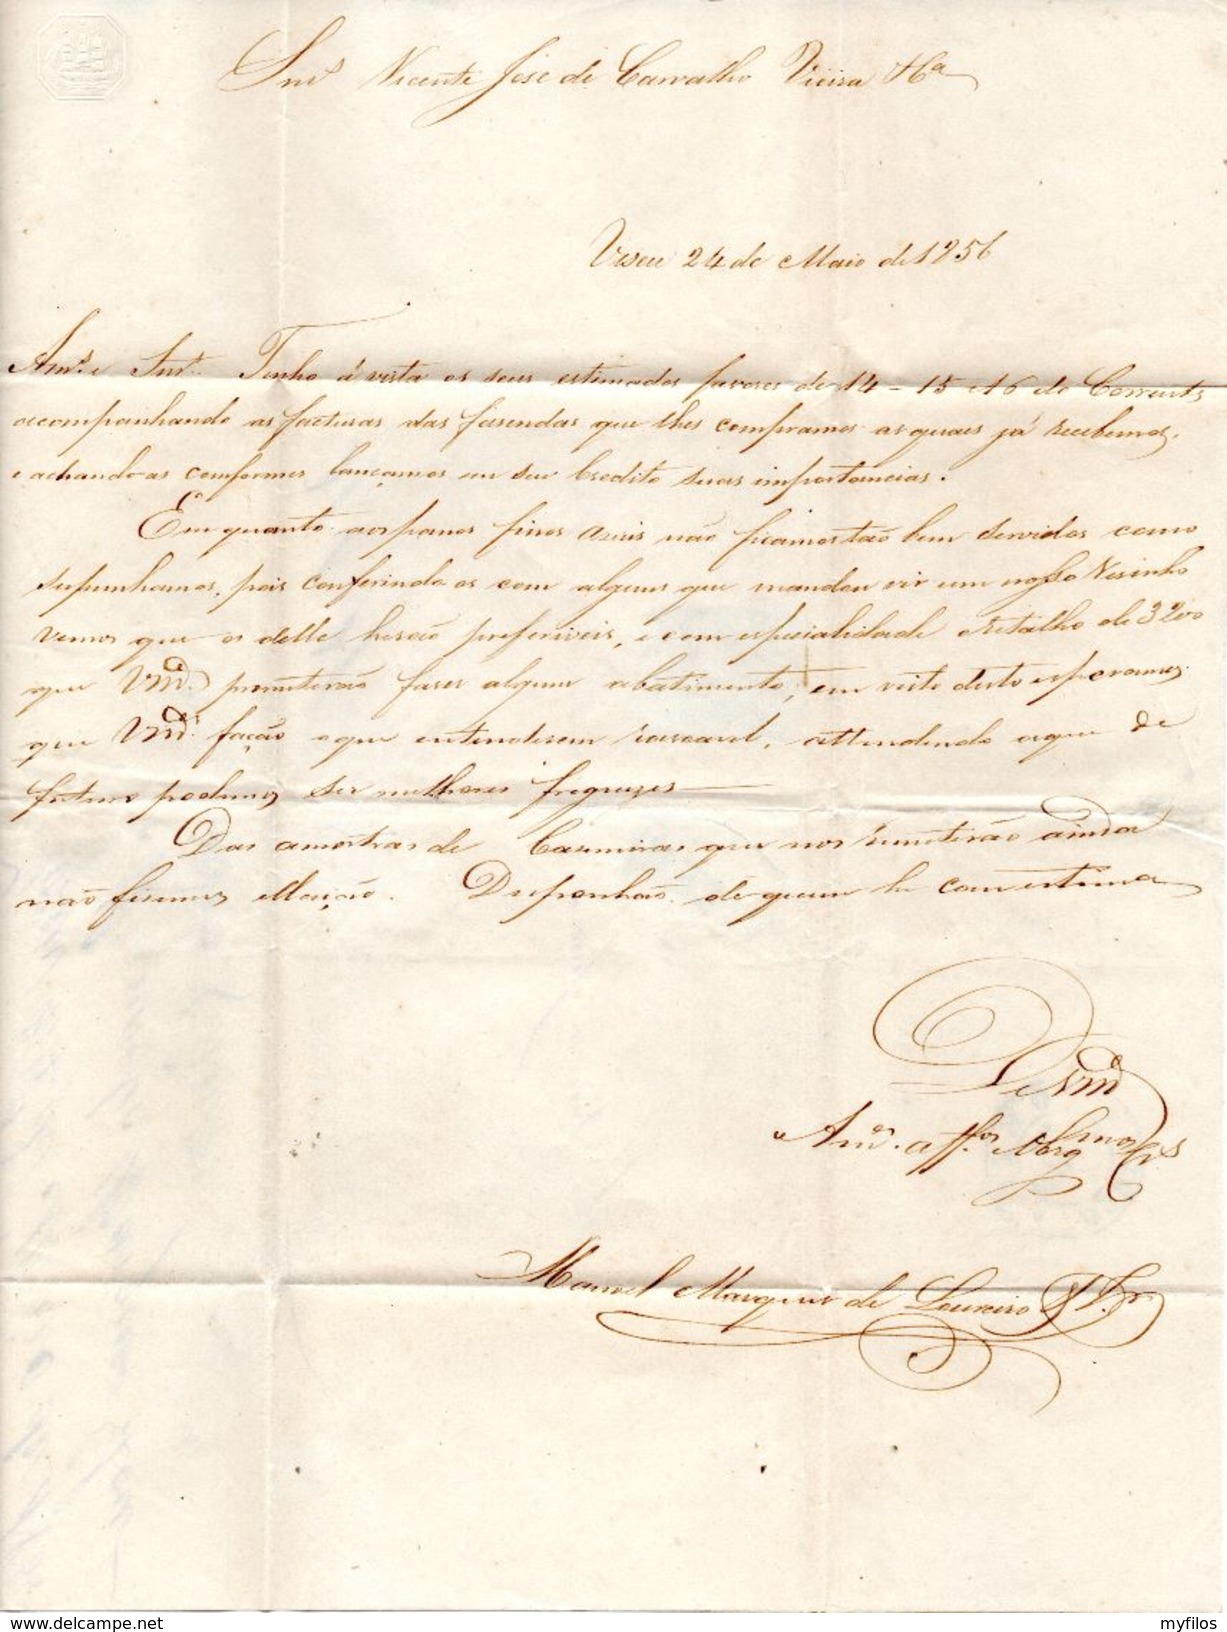 Snrs Vicente José de Carvalho Vieira & Ca
Viseu 24 de Maio de 1856
Amos e Snrs. Tenho á vista os seus estimados favores de 14 - 15 e 16 do Corrente
acompanhando as facturas das fasendas que lhes compramos as quaes já recebemos,
e achando-as comformes lançamos em seu Credito suas importancias.
Em quanto aos panos finos asuis não ficamos tão bem servidos como
supunhamos, pois conferindo os com alguns que mandou vir um nosso Visinho
vemos que os delle lhe são preferiveis, e com especialidade o Retalho de 3200
que Vmces permiterão faser algum abatimento; em vista disto esperamos
que Vmces fação o que entenderem rasoavel, attendendo a que de
futuro podemos ser melhores freguezes —
Das amostras de Casimiras que nos remeterão ainda
não fisemos elleição. Disponhão de quem he com estima
De Vmces
Amos attos e Obrgmos Crs
Manoel Marques de Loureiro & Sr
delcampe.net
myfilos